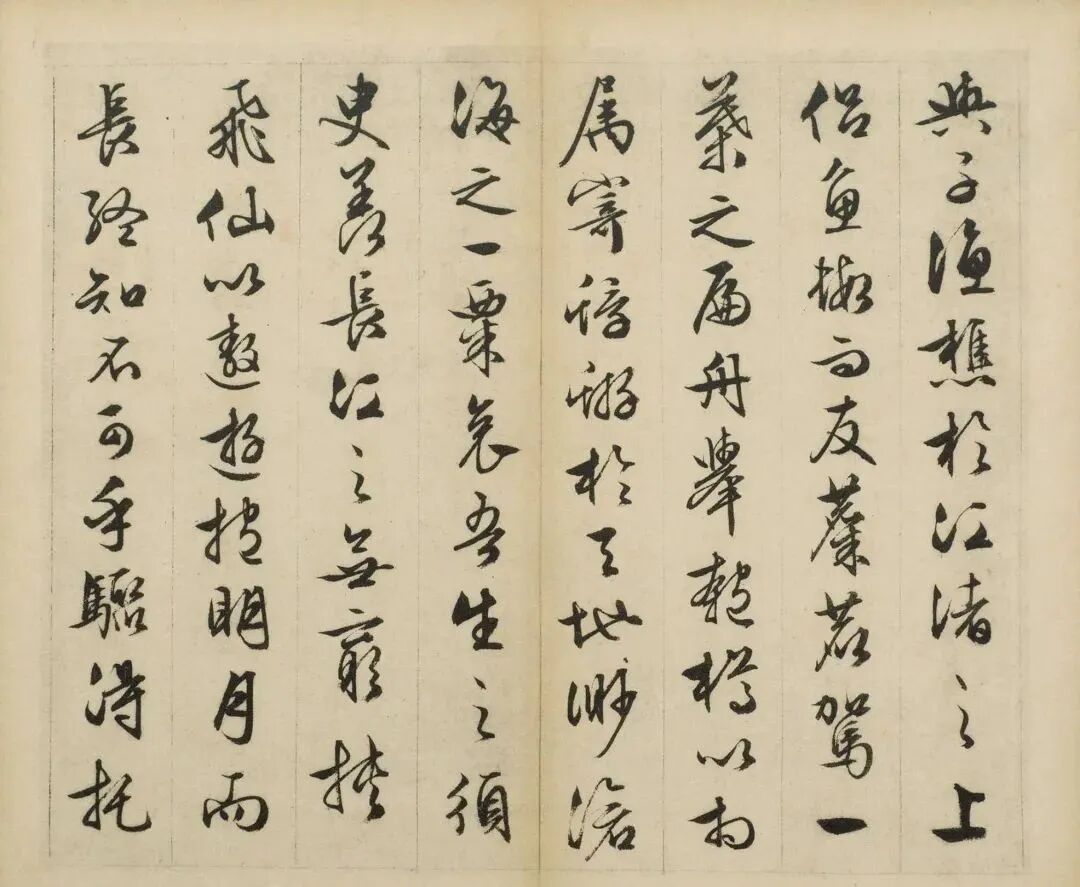 與子漁樵於江渚之上
侶魚蝦而友麋鹿駕一
葉之扁舟舉匏樽以相
属寄蜉蝣於天地渺滄
海之一粟哀吾生之須
臾羨長江之無窮挾
飛仙以遨遊抱明月而
長終知不可乎驟得托